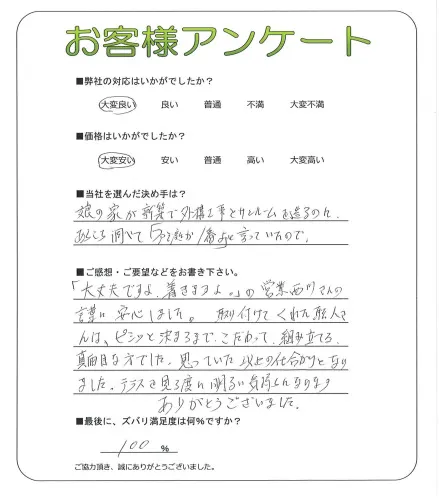 お客様アンケート
■弊社の対応はいかがでしたか?
大変良い 良い 普通 不満 大変不満
■価格はいかがでしたか?
大変安い 安い 普通 高い 大変高い
■当社を選んだ決め手は?
娘の家が新築で外構工事とサンルームを造るのに、
あちこち調べて「 が1番よ」と言っていたので。
■ご感想・ご要望などをお書き下さい。
「大丈夫ですよ、着きますよ。」の営業西川さんの
言葉に安心しました。取り付けてくれた職人さ
んは、ピシッと決まるまで、こだわって、組み立てる
真面目な方でした。思っていた以上の仕上がりとなり
ました。テラスを見る度に明るい気持ちになります
ありがとうございました。
■最後に、ズバリ満足度は何%ですか?
100 %
ご協力頂き、誠にありがとうございました。